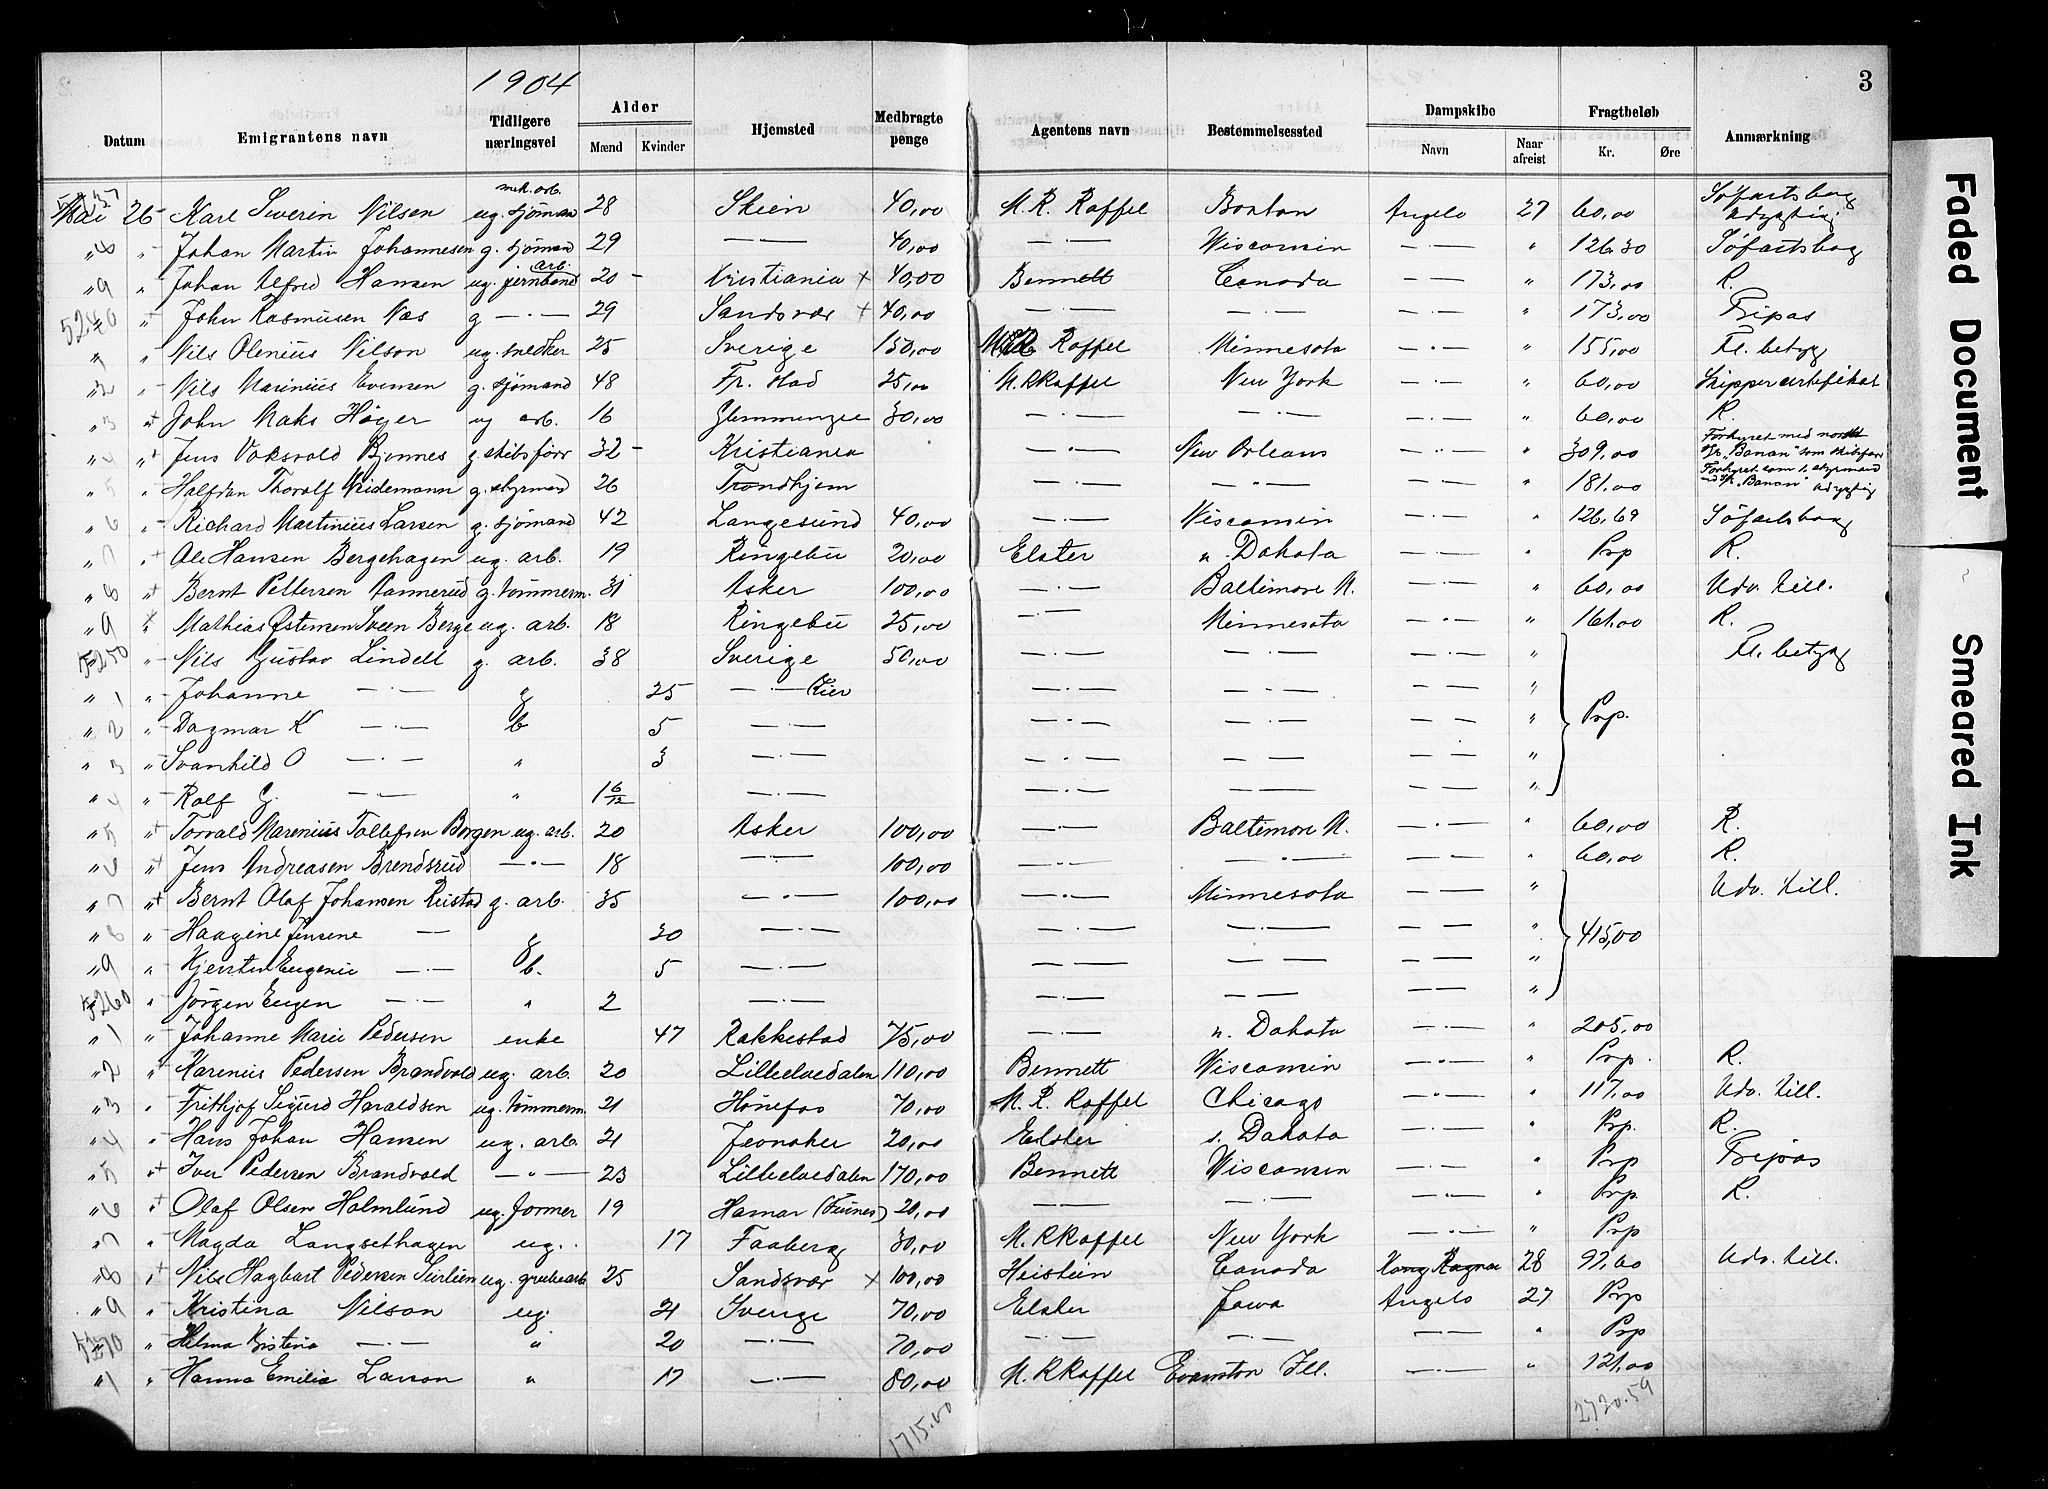 1904
3
Datum | Emigrantens navn | Tidligere næringsvei | Alder Mænd | Kvinder | Hjemsted | Medbragte penge | Agentens navn | Bestemmelsessted | Dampskibe Navn | Naar afreist | Fragtbeløb Kr. | Øre | Anmærkning
Mai 26 Karl Severin Nilsen ug. sjömand mek. arb. 28 Skien 40,00 M. R. Raffel Boston Angelo 27 60,00 Söfartsbog
8 " Johan Martin Johannesen g. sjömand 29 — — 40,00 — " — Wisconsin — " — " 126,30 Söfartsbog
" 9 " Johan Alfred Hansen ug. jernband arb. 20 — Kristiania × 40,00 Bennett Canada — " — " 173,00 R.
5240 " John Rasmusen Næs g — " — 29 Sandsvær × 40,00 — " — — " — — " — " 173,00 Fripas
" 1 " Nils Olenius Nilson ug. snedker 25 Sverige 150,00 M.R. Raffel Minnesota — " — " 155,00 Fl. betyg
" 2 " Nils Marinius Evensen g. sjömand 48 Fr. stad 35,00 M. R Raffel New York — " — " 60,00 Skippercertifikat
" 3 " John Maks Höyer ug arb. 16 Glemminge 30,00 — " — — " — — " — " 60,00 R.
" 4 " Jens Voksvold Bjennes g. skibsförer 32 — Kristiania — " — New Orleans — " — " 309,00 Forhyret med norsk Sk. "Banan" som skibsförer
" 5 " Halfdan Thoralf Weidemann g. styrmand 26 Trondhjem — " — — " — — " — " 181,00 Forhyret som 1. styrmand med Sk. "Banan"
" 6 " Richard Martinius Larsen g. sjömand 42 Langesund 40,00 — " — Wisconsin — " — " 126,69 Söfartsbog
" 7 " Ole Hansen Bergehagen ug. arb. 19 Ringebu 20,00 Elster n. Dakota — " — " Prp R.
" 8 " Bernt Pettersen g. tömmerm. 31 Asker 100,00 — " — Baltimore M. — " — " 60,00 Udv. till.
" 9 " Mathias Östensen Sveen Berge ug. arb. 18 Ringebu 25,00 — " — Minnesota — " — " 161,00 R.
5250 " Nils Gustav Lindell g. arb. 38 Sverige 50,00 — " — — " — — " — " Fl. betyg
" 1 " Johanne — " — g 25 — " — — " — — " — — " — "
" 2 " Dagmar K — " — b 5 — " — — " — — — — — " Prp.
" 3 " Svanhild O — " — " 3 — " — — " — — — — — "
" 4 " Rolf G. — " — " 1 6/12 — " — — — — — "
" 5 " Torvald Marenius Tollefsen Borgen ug. arb. 20 Asker 100,00 — " — Baltimore M. — " — " 60,00 R.
" 6 " Jens Andreasen Brendsrud — " — 18 — " — 100,00 — " — — " — — " — " 60,00 R.
" 7 " Bernt Olaf Johansen Rustad g. arb. 35 — " — 100,00 — " — Minnesota — " — " Udv. till.
" 8 " Haagine Jensene — g 30 — " — — " — — " — — — " 415,00
" 9 " Kjersten Eugenie — " — b. 5 — " — — — — — — — "
5260 " Jörgen Eugen — " — " 2 — " — — " — — — — — "
" 1 " Johanne Marie Pedersen enke 47 Rakkestad 75,00 — " — n. Dakota — " — " 205,00
" 2 " Karenius Pedersen Brandvold ug. arb. 20 Lilleelvedalen 110,00 Bennett Wisconsin — " — " Prp. R.
" 3 " Frithjof Sigurd Haraldsen ug. tömmerm. 21 Hönefos 70,00 M. R. Raffel Chicago — " — " 117,00 Udv. till.
" 4 " Hans Johan Hansen ug. arb. 21 Jevnaker 20,00 Elster s. Dakota — " — " Prp. R.
" 5 " Iver Pedersen Brandvold — " — 23 Lilleelvedalen 170,00 Bennett Wisconsin — " — " Prp Fripas
" 6 " Olaf Olsen Holmlund ug. former 19 Hamar (Furnes) 20,00 — " — — " — — " — " Prp R.
" 7 " Magda Langsethagen ug. 17 Faaberg 30,00 M. R Raffel New York — " — " Prp
" 8 " Nils Hagbart Pedersen ug. grubearb 25 Sandsvær × 100,00 Heistein Canada Kong Ragnar 28 97,60 Udv. till.
" 9 " Kristina Nilson ug 21 Sverige 70,00 Elster Jowa Angelo 27 Prp
5270 " Helma Kristina — " — " 20 — " — 70,00 — " — — " — " Prp
" 1 " Hanna Emilia Larson " 17 — " — 80,00 M. R Raffel Evanston Ill. — " — " 121,00
1715.00
2720.59
Faded Document
Smeared Ink